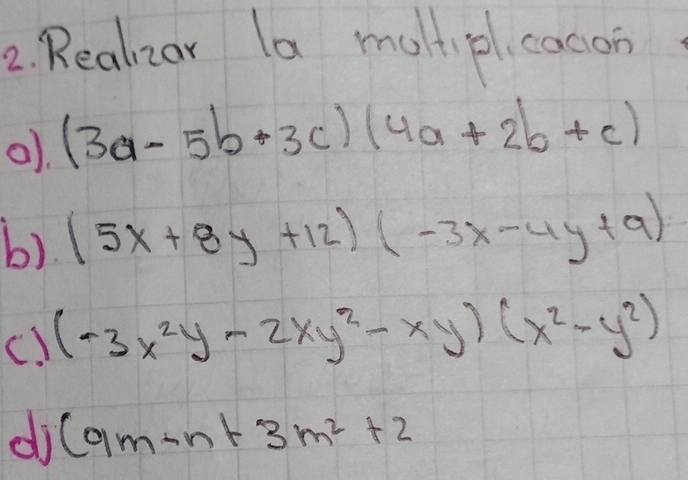 2. Realizar la multiplicacion
a). (3a - 5b + 3c) (4a + 2b + c)
b). (5x + 8y + 12) (-3x - 4y + 9)
c.) (-3x²y - 2xy² - xy) (x² - y²)
d) (9m - n + 3m² + 2